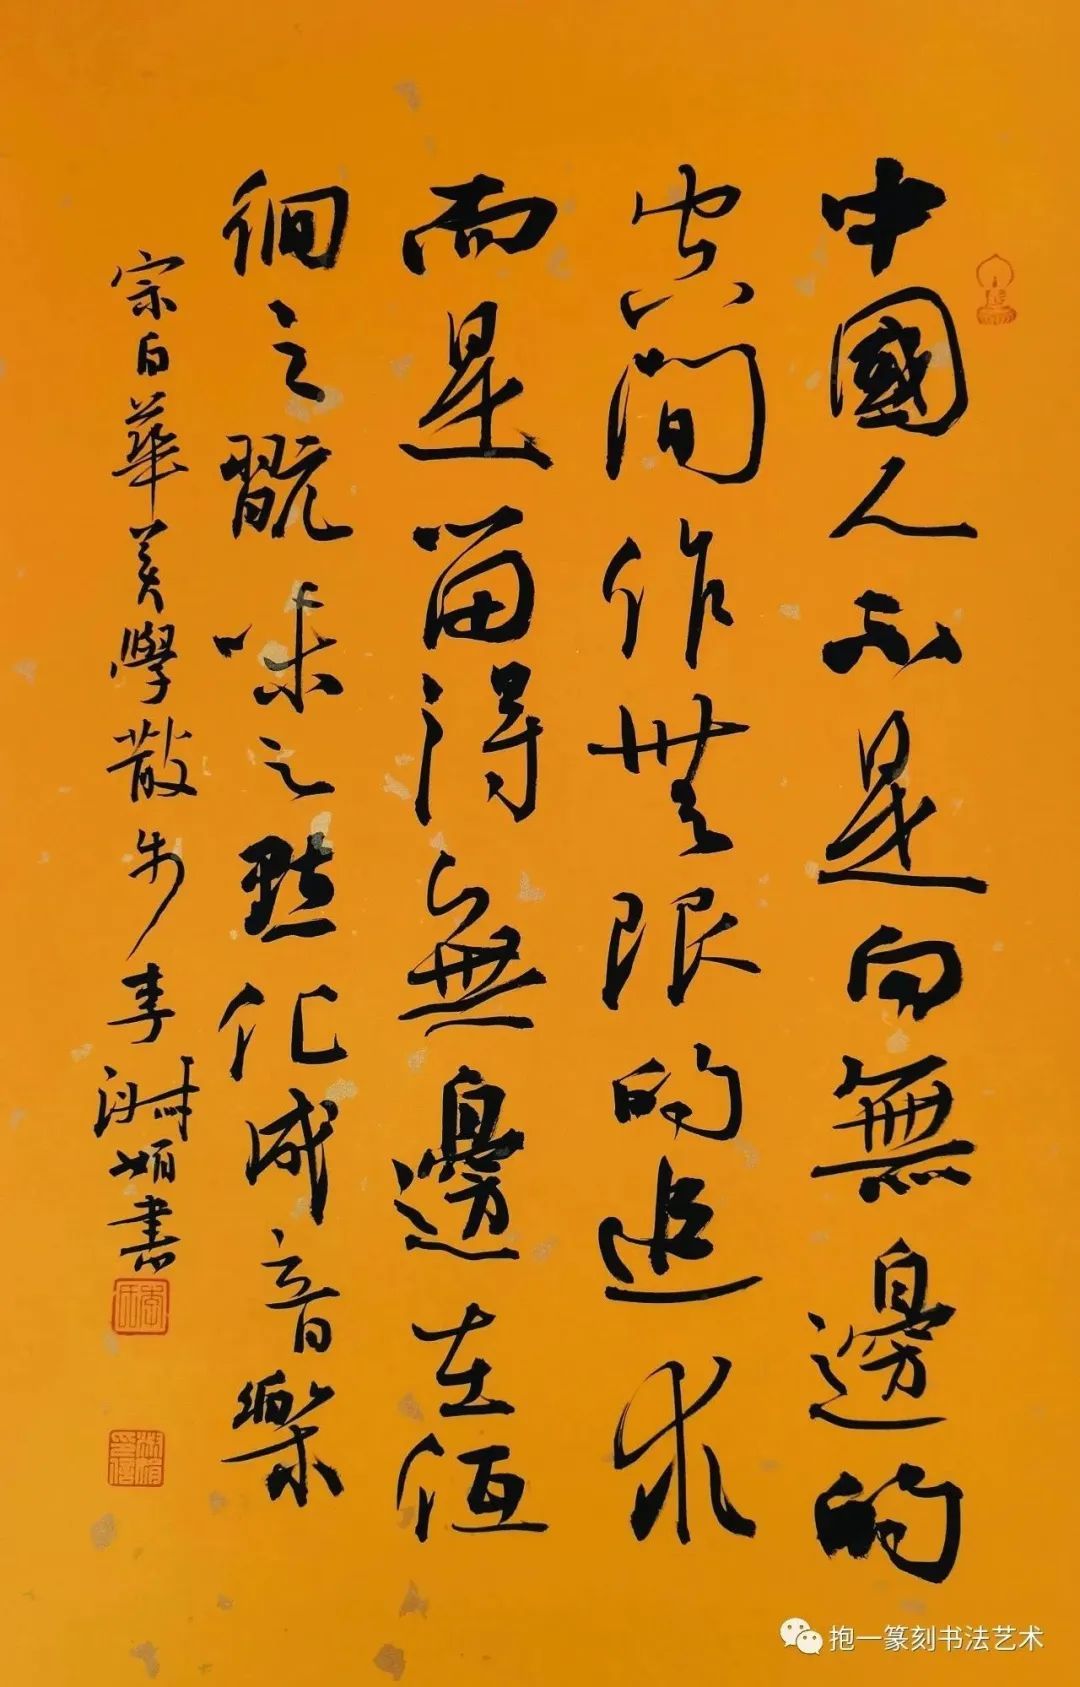 中國人不是向無邊的
空間作無限的追求
而是留得無邊在低
徊之翫味之點化成音樂
宗白華美學散步 李淑娟書
抱一篆刻书法艺术